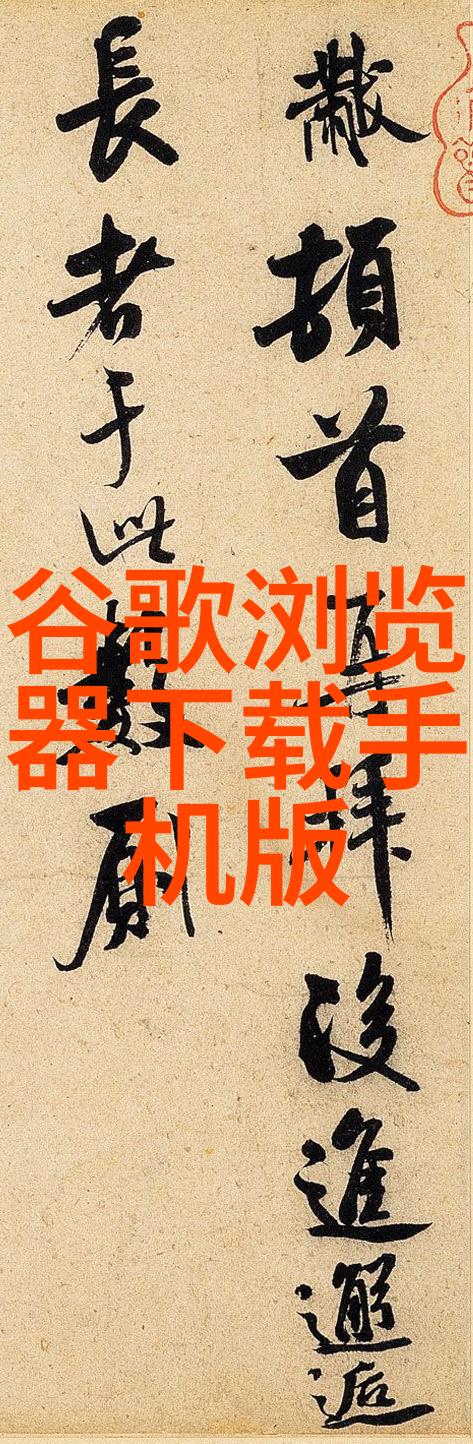 黻頓首再拜後進邂逅
長者于此數厠
谷歌浏览
器下载手
机版